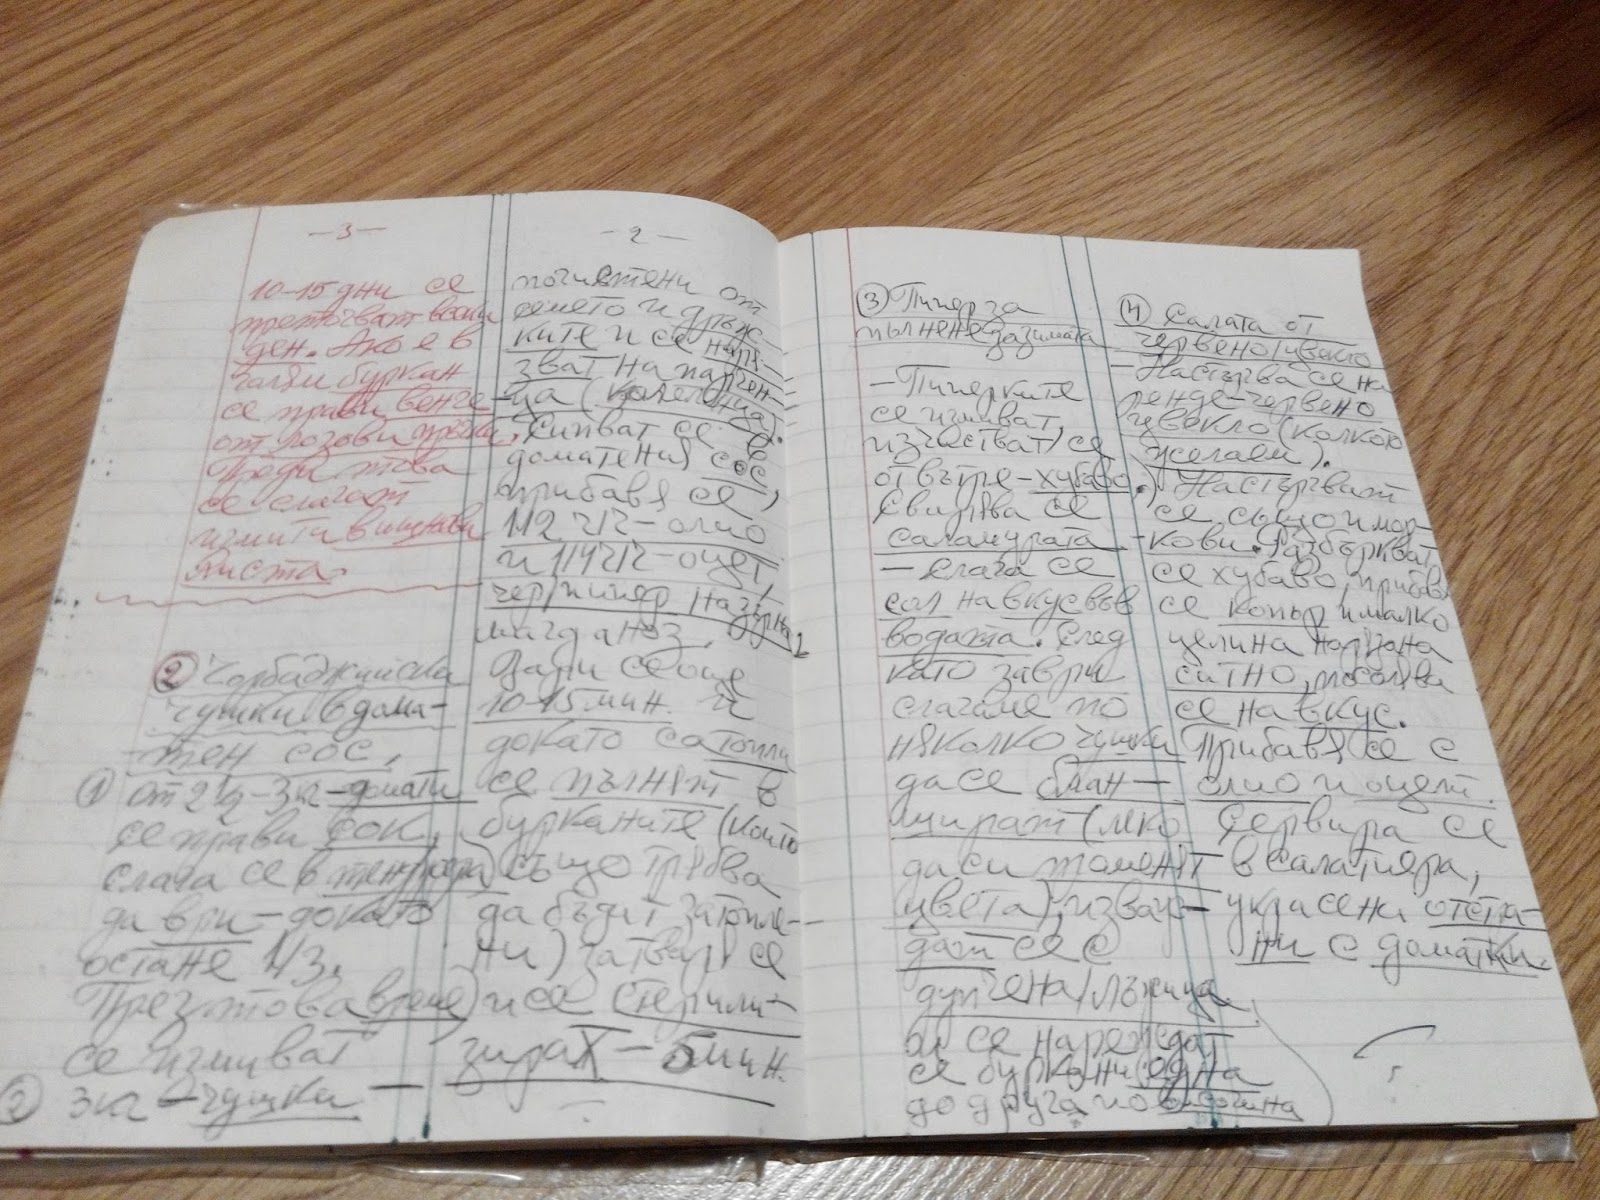 —3—
10-15 дни се
преточват всеки
ден. Ако е в
голям буркан
се прави венче
от лозови пръчки,
отгоре това
се слагат
измити вишневи
листа.
② Чорбаджийски
чушки в дома-
тен сос,
① от 2кг-3кг-домати
се прави сок,
слага се в тенджера
да ври-докато
остане 1/3.
През това време
се измиват
② 3кг-чушки-
—2—
почистени от
семето и дръж-
ките и се наря-
зват на парчен-
ца (колелца).
Сипват се в
доматения сос,
прибавя се
1/2 ч/ч-олио
и 1/4 ч/ч-оцет,
чер/пипер на зърна,
магданоз.
Вари се още
10-15 мин. и
докато са топли
се пълнят в
бурканите (които
също трябва
да бъдат затопле-
ни) затвар. се
и се стерили-
зират - 5 мин.
③ Пипер за
пълнене за зимата
-Пиперките
се измиват,
изчестват се
отвътре-хубаво.
Свирява се
саламурата
-слага се
сол на вкус във
водата. След
като заври
слагаме по
няколко чушки
да се блан-
шират (леко
да си променят
цвета), изваж-
дат се с
дупчена/лъжица
и се нареждат
се буркани една
до друга по височина
④ Салата от
червено/цвекло
-Настъргва се на
ренде-червено
цвекло (колкото
желаем).
Настъргват
се също и мор-
кови. Разбъркват
се хубаво, прибавя
се копър и малко
целина нарязана
ситно, посолява
се на вкус.
Прибавя се с
олио и оцет.
Сервира се
в салатиера,
украсена отстра-
ни с доматки.